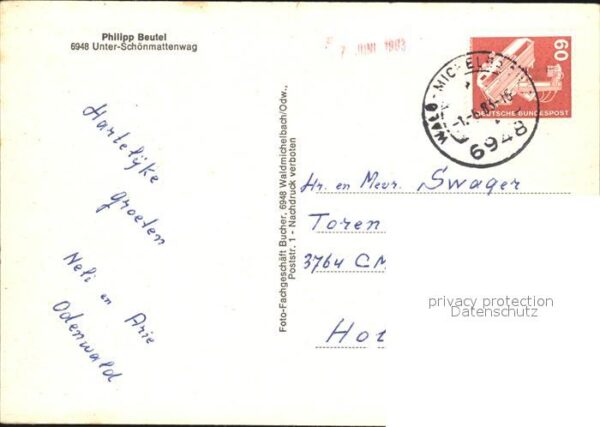 Philipp Beutel
6948 Unter-Schönmattenwag
7. JUNI 1983
60
DEUTSCHE BUNDESPOST
WALD-MICHELBACH
-1.-6.83-16
6948
Hartelijke
groeten
Neli en Arie
Odenwald
Foto-Fachgeschäft Bucher, 6948 Waldmichelbach/Odw.,
Poststr. 1 - Nachdruck verboten
Hr. en Mevr. Swager
Toren
3764 CM
Hol
privacy protection
Datenschutz